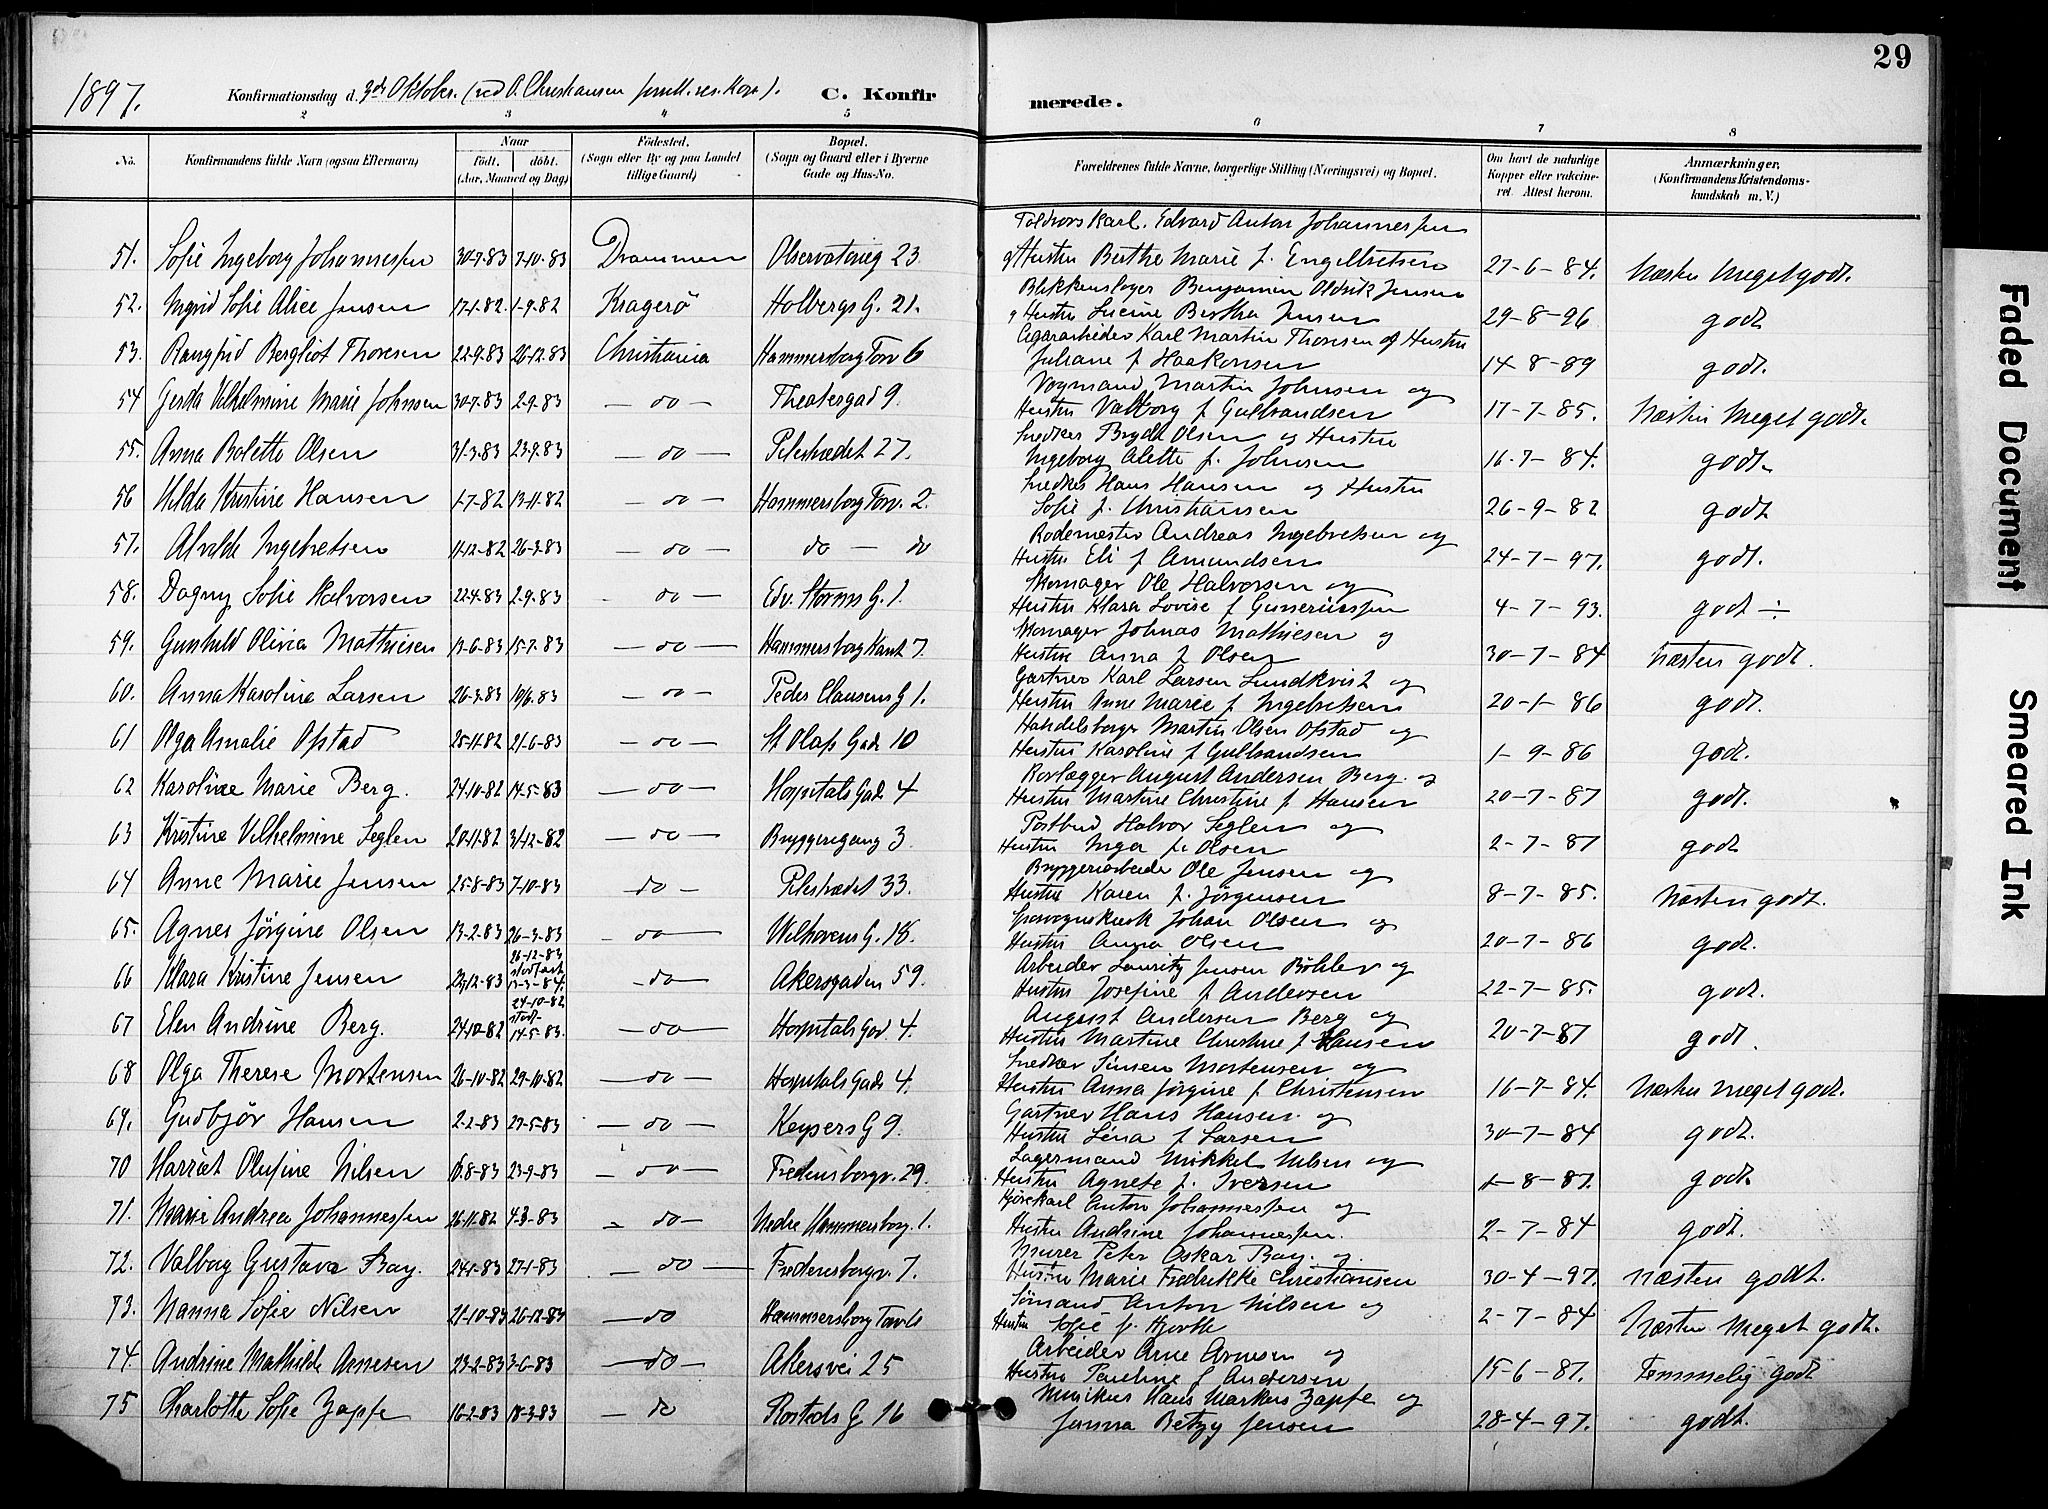 29
1897. Konfirmationsdag d. 3die Oktober. (ved O. Christiansen res. Kap.). C. Konfir merede.
2 3 4 5 6 7 8
No. Konfirmandens fulde Navn (ogsaa Efternavn) Naar født. døbt. (Aar, Maaned og Dag) Fødested. (Sogn eller By og paa Landet tillige Gaard) Bopæl. (Sogn og Gaard eller i Byerne Gade og Hus-No. Forældrenes fulde Navne, borgerlige Stilling (Næringsvei) og Bopæl. Om havt de naturlige Kopper eller vakcineret. Attest herom. Anmærkninger. (Konfirmandens Kristendomskundskab m. V.)
Toldvorskarl. Edvard Anton Johannessen
51. Sofie Ingeborg Johannessen 30-7-83 7-10-83 Drammen Observatorieg 23 og Hustru Berthe Marie f. Engelbretsen 27-6-84. Næsten Meget godt.
Blikkenslager Benjamin Oldrik Jensen
52. Ingrid Sofie Alice Jensen 17-1-82. 1-9-82 Kragerö Holbergs G. 21. og Hustru Lucine Berthea Jensen 29-8-96 godt
Cigararbeider Karl Martin Thoresen og Hustru
53. Rangfrid Bergliot Thoresen 22-9-83 26-12-83 Christiania Hammersborg Torv 6 Juliane f Haakonsen 14-8-89 godt.
Vogmand Martin Johnsen og
54 Gerda Vilhelmine Marie Johnsen 30-7-83 2-9-83 — do — Theatergad 9. Hustru Valborg f Gulbrandsen 17-7-85. Næsten Meget godt.
Snedker Brydt Olsen og Hustru
55. Anna Bolette Olsen 31-3-83 23-9-83 — do — Pilestrædet 27. Ingeborg Alette f. Johnsen 16-7-84. godt.
Snedker Hans Hansen og Hustru
56 Hilda Kristine Hansen 1-7-82 13-11-82 — do — Hammersborg Torv. 2. Sofie f. Christiansen 26-9-82 godt
Rodemester Andreas Ingebretsen og
57. Alvilde Ingebretsen 11-12-82 26-3-83 — do — do — do Hustru Eli f Amundsen 24-7-97. godt.
Skomager Ole Halvorsen og
58. Dagny Sofie Halvorsen 22-4-83 2-9-83 — do — Edv. Storms G. 1. Hustru Klara Lovise f Gunerussen 4-7-93. godt ÷
Skomager Johnas Mathiesen og
59. Gunhild Olivia Mathiesen 13-6-83 15-7-83 — do — Hammersborg Kant 7. Hustru Anna f Olsen 30-7-84 Næsten godt.
Gartner Karl Larsen Lundkvist og
60. Anna Karoline Larsen 26-3-83 10/6-83 — do — Peder Clausens G 1. Hustru Anne Marie f Ingebretsen 20-1-86 godt.
Handelsborger Martin Olsen Opstad og
61 Olga Amalie Opstad 25-11-82 21-6-83 — do — St Olafs Gade 10 Hustru Karoline f Gulbrandsen 1-9-86 godt.
Rorlægger August Andersen Berg og
62 Karoline Marie Berg. 24-10-82 14-5-83 — do — Hospitals Gad. 4 Hustru Martine Christine f Hansen 20-7-87 godt.
Postbud Halvor Seglen og
63 Kristine Vilhelmine Seglen 20-11-82 31-12-82 — do — Bryggerigang 3. Hustru Inga f. Olsen 2-7-87 godt
Bryggeriarbeider Ole Jensen og
64 Anne Marie Jensen 25-8-83 7-10-83 — do — Pilestrædet 33. Hustru Karen f. Jörgensen 8-7-85. Næsten godt.
Sporvognskusk Johan Olsen og
65. Agnes Jörgine Olsen 13-2-83 26-3-83 — do — Welhavens G. 18. Hustru Anna Olsen 20-7-86 godt.
Arbeider Lauritz Jensen Böhler og
66 Klara Kristine Jensen 23-12-83 26-12-83 stadfæst 13-3-84. — do — Akersgaden 59. Hustru Josefine f Andersen 22-7-85. godt.
August Andersen Berg og
67 Elen Andrine Berg. 24-10-82 24-10-82 stadf. 14-5-83. — do — Hospitals Gad. 4. Hustru Martine Christine f Hansen 20-7-87 godt.
Snedker Simen Mortensen og
68 Olga Therese Mortensen 26-10-82 29-10-82 — do — Hospitals Gade 4. Hustru Anna Jörgine f Christensen 16-7-84. Næsten meget godt.
Gartner Hans Hansen. og
69. Gudbjör Hansen 2-2-83 27-5-83 — do — Keysers G 9. Hustru Lina f Larsen 30-7-84 godt.
Lagermand Mikkel Nilsen og
70 Harriet Olufine Nilsen 10-8-83 23-9-83 — do — Fredensborgv. 29. Hustru Agnete f. Iversen 1-8-87. godt.
Kjörekarl Anton Johannessen og
71. Marie Andrea Johannessen 26-11-82 4-3-83 — do — Nedre Hammersborg. 1. Hustru Andrine Johannessen. 2-7-84 godt.
Murer Peter Oskar Bay. og.
72. Valborg Gustava Bay. 24-1-83 27-1-83 — do — Fredensborgv. 7. Hustru Marie Fredrikke Christiansen 30-4-97. næsten godt.
Sömand Anton Nilsen og
73. Nanna Sofie Nilsen 21-10-83 26-12-83 — do Hammersborg Torv 6 Hustru Sofie f. Hjorth 2-7-84 Næsten Meget godt.
Arbeider Arne Arnesen og
74. Andrine Mathilde Arnesen 23-2-83 3-6-83 — do — Akersvei 25 Hustru Pauline f Andersen 15-6-87. Temmelig godt
Musikus Hans Markus Zapfe og
75 Charlotte Sofie Zapfe 16-2-83 18-3-83 — do Rosteds G 16 Janna Betzy Jensen 28-4-97. godt.
Faded Document
Smeared Ink